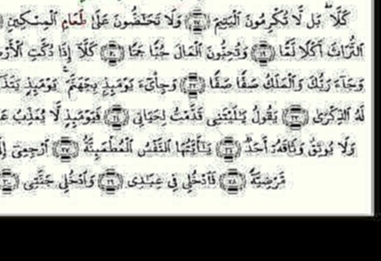 كَلَّا ۖ بَل لَّا تُكْرِمُونَ ٱلْيَتِيمَ ١٧ وَلَا تَحَٰٓضُّونَ عَلَىٰ طَعَامِ ٱلْمِسْكِينِ
ٱلتُّرَاثَ أَكْلًا لَّمًّا ١٩ وَتُحِبُّونَ ٱلْمَالَ حُبًّا جَمًّا ٢٠ كَلَّآ إِذَا دُكَّتِ
وَجَآءَ رَبُّكَ وَٱلْمَلَكُ صَفًّا صَفًّا ٢٢ وَجِا۟ىٓءَ يَوْمَئِذٍۭ بِجَهَنَّمَ ۚ يَوْمَئِذٍ
لَهُ ٱلذِّكْرَىٰ ٢٣ يَقُولُ يَٰلَيْتَنِى قَدَّمْتُ لِحَيَاتِى ٢٤ فَيَوْمَئِذٍ لَّا يُعَذِّبُ
وَلَا يُوثِقُ وَثَاقَهُۥٓ أَحَدٌ ٢٦ يَٰٓأَيَّتُهَا ٱلنَّفْسُ ٱلْمُطْمَئِنَّةُ ٢٧ ٱرْجِعِىٓ
مَّرْضِيَّةً ٢٨ فَٱدْخُلِى فِى عِبَٰدِى ٢٩ وَٱدْخُلِى جَنَّتِى ٣٠